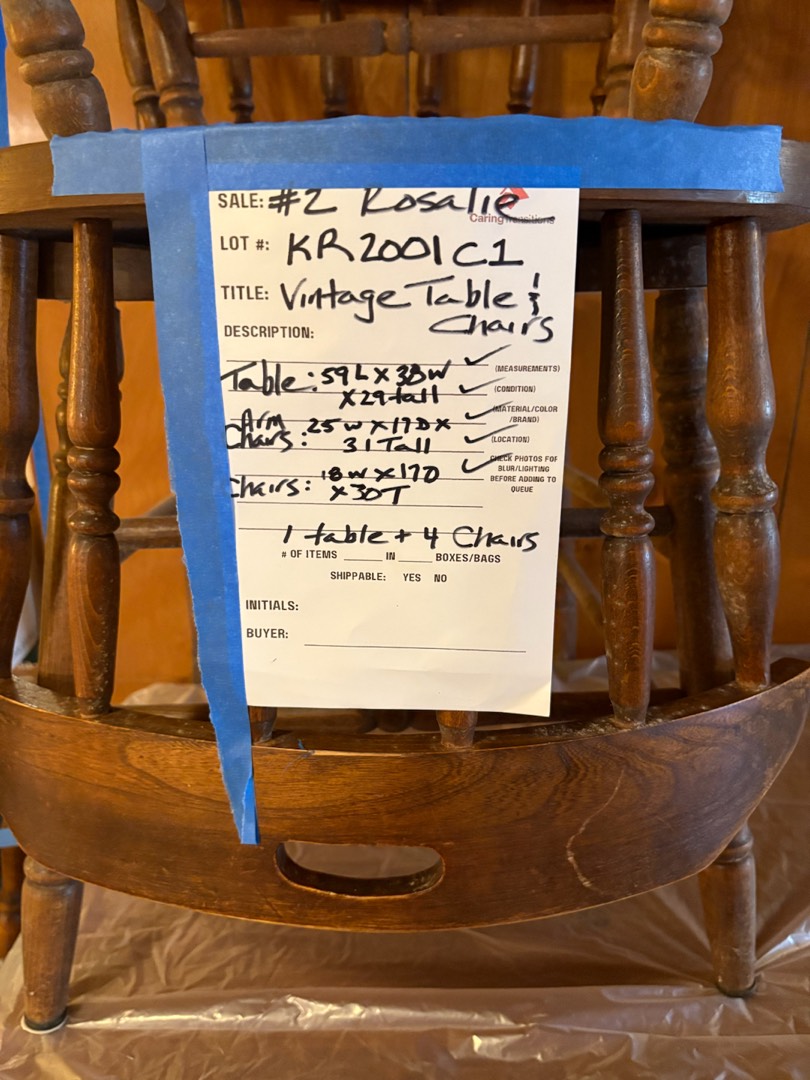 SALE: #2 Rosalie
CaringTransitions
LOT #: KR2001C1
TITLE: Vintage Table &
Chairs
DESCRIPTION:
Table: 59L X 38W ✓ (MEASUREMENTS)
X 29 tall ✓ (CONDITION)
Arm 25W X 17D X ✓ (MATERIAL/COLOR
/BRAND)
Chairs: 31 Tall ✓ (LOCATION)
Chairs: 18W X 17D ✓ CHECK PHOTOS FOR
BLUR/LIGHTING
X 30T BEFORE ADDING TO
QUEUE
1 table + 4 Chairs
# OF ITEMS ____ IN ____ BOXES/BAGS
SHIPPABLE: YES NO
INITIALS:
BUYER: